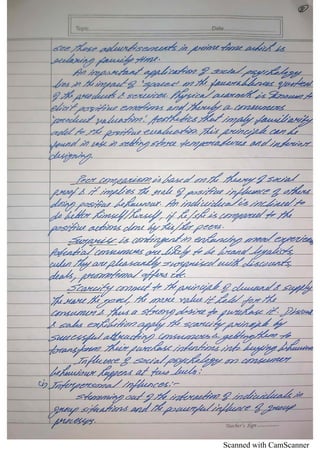 Topic
Date
see these advertisements in prime time which is
relaxing family time.
An important application of social psychology
lies in the impact of 'spaces' on the favourableness quotient
of the products & services. Physical aspect is known to
elicit positive emotions and thereby a consumers
'product valuation'. Aesthetics that imply familiarity
add to the positive evaluation. This principle can be
found in use in setting store temperatures and interior
designing.
Peer comparison is based on the theory of social
proof & it implies the role of positive influence of others
doing positive behaviour. An individual is inclined to
do better himself/herself, if he/she is compared to the
positive actions done by his/her peers.
Surprise is contingent in enhancing mood experience
Potential consumers are likely to be brand loyalists
when they are pleasantly surprised with discounts,
deals, promotional offers etc.
Scarcity connect to the principle of demand & supply
The rare the good, the more value it holds for the
consumers & thus a strong desire to purchase it.
& sales exhibition apply the scarcity principle by
successful attracting consumers & getting them to
transform their purchase intentions into buying behaviour
Influence of social psychology on consumer
behaviour happens at two levels:
i) Interpersonal influences:-
stemming out of the interaction of individuals in
group situations and the powerful influence of group
processes.
Teacher's Sign
Scanned with CamScanner